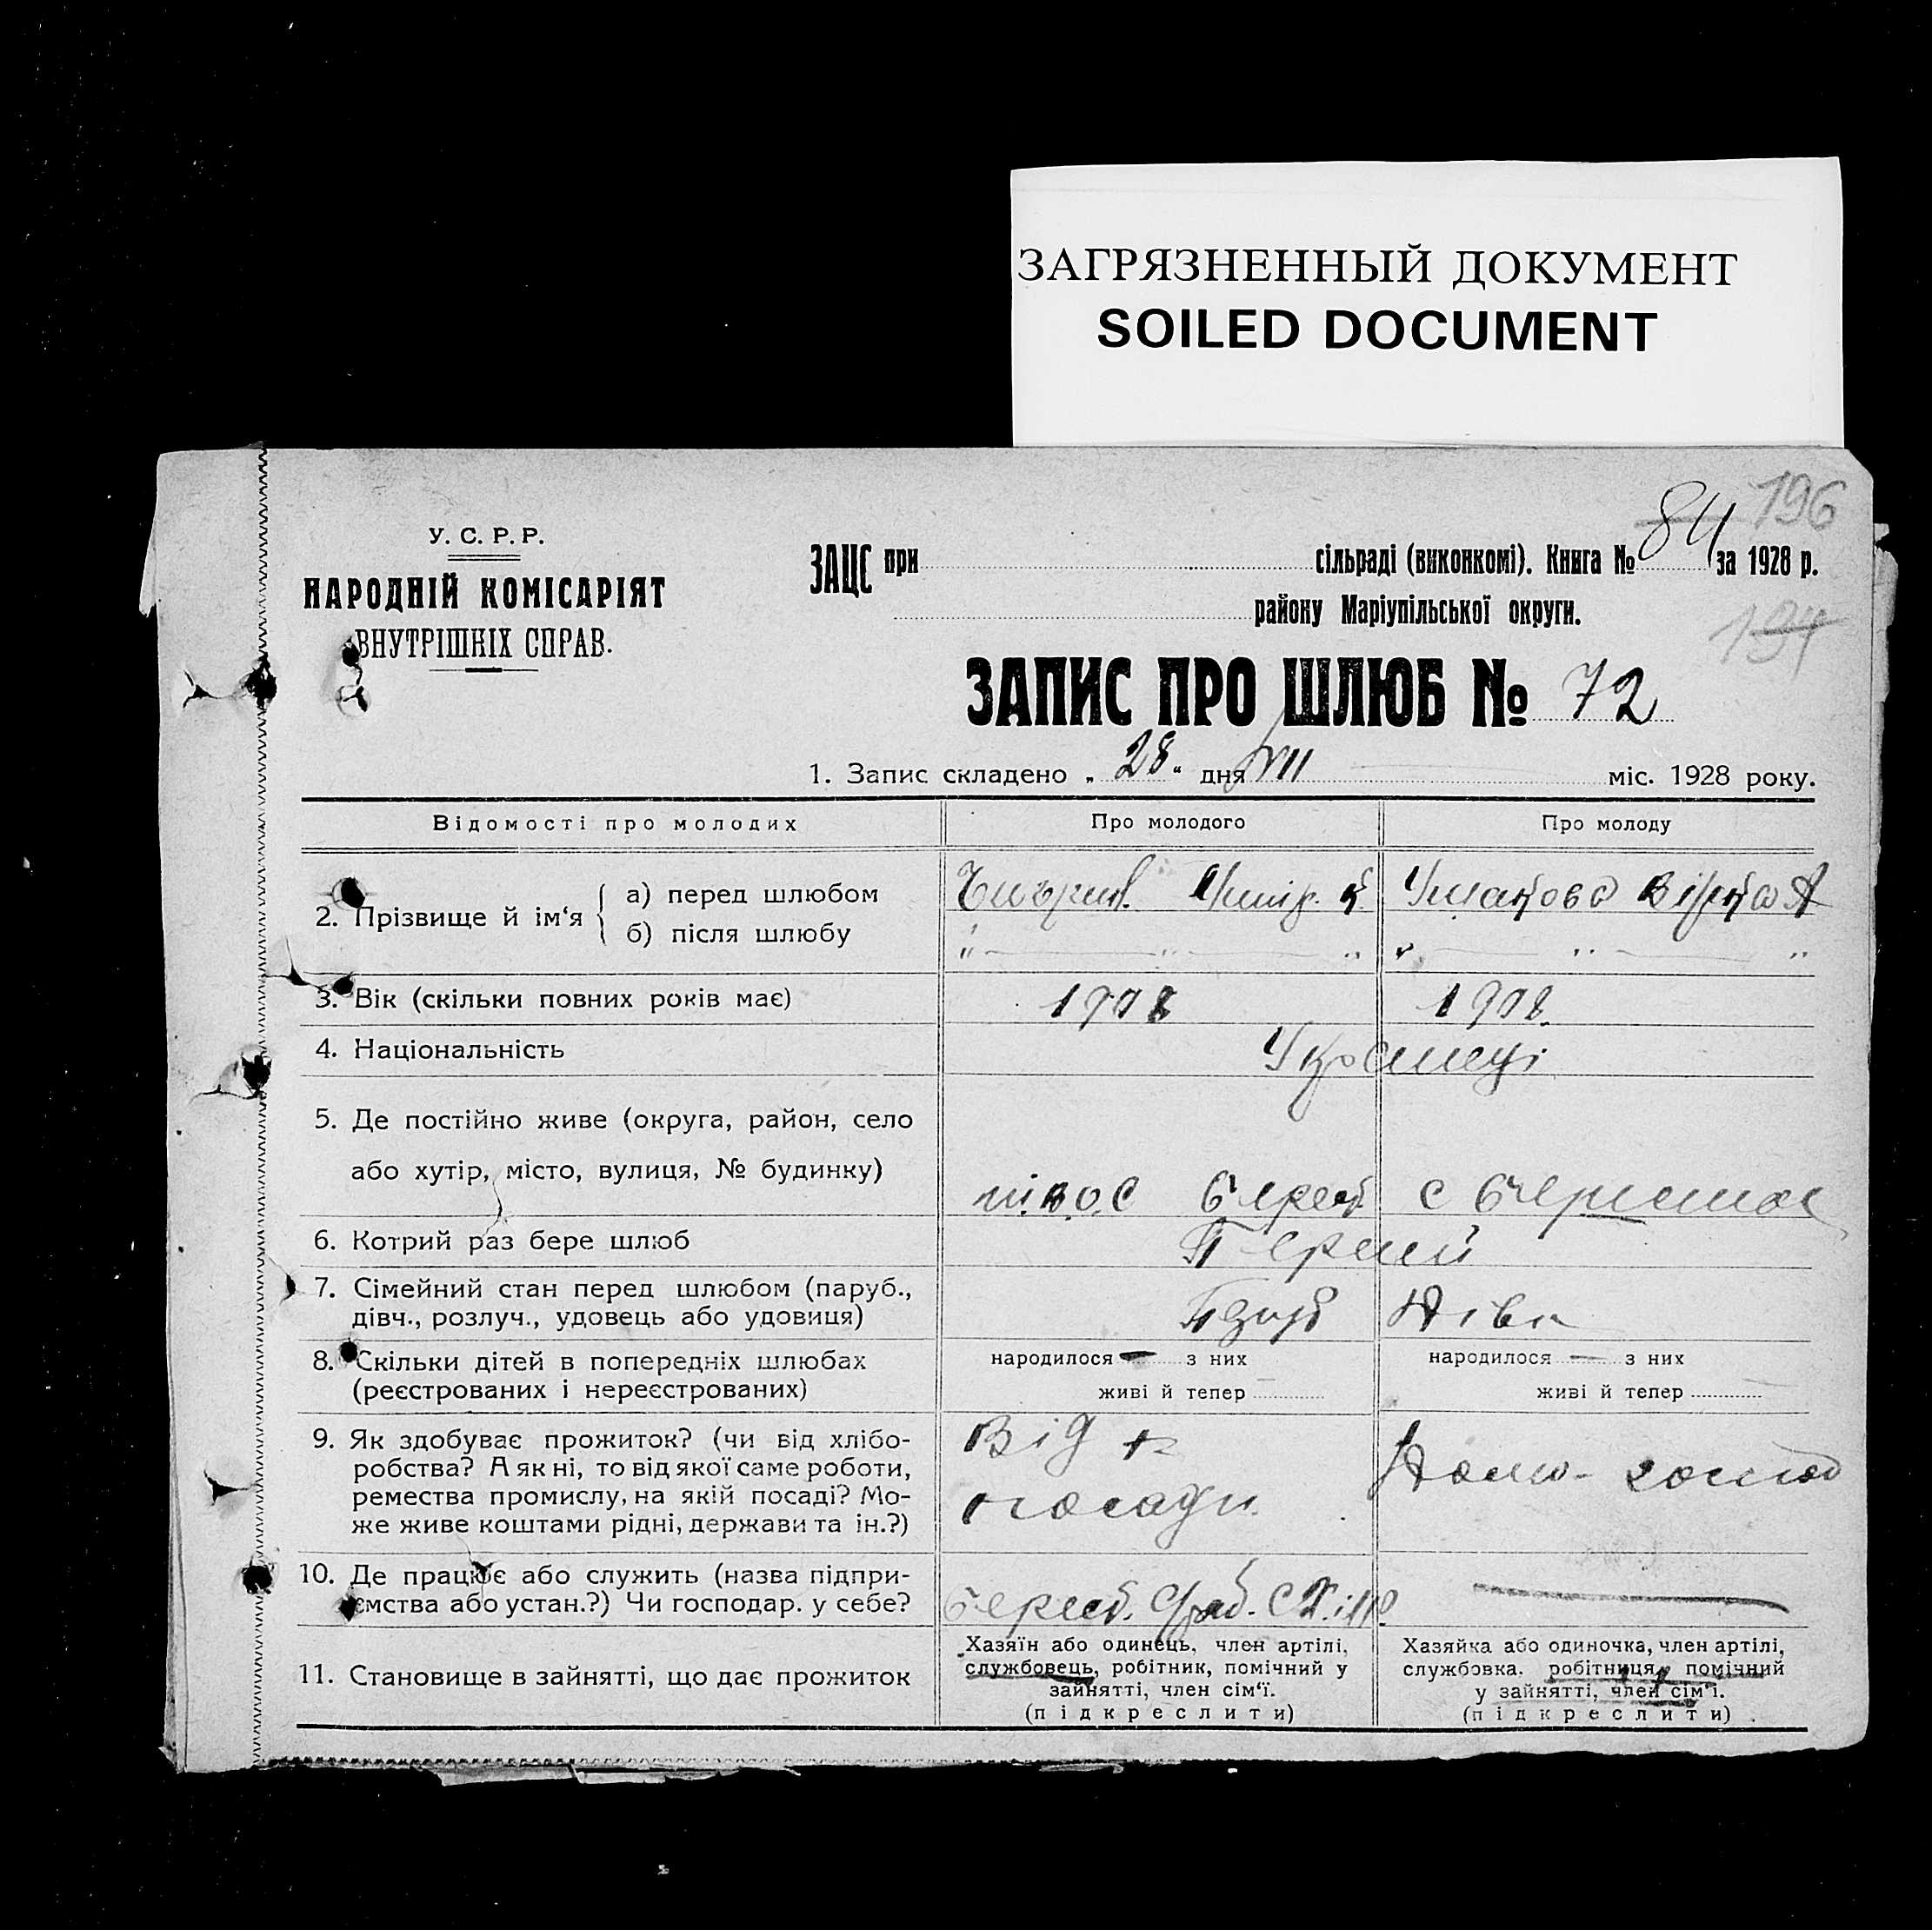 ЗАГРЯЗНЕННЫЙ ДОКУМЕНТ
SOILED DOCUMENT
196
У. С. Р. Р.
НАРОДНІЙ КОМІСАРІЯТ
ВНУТРІШНІХ СПРАВ.
ЗАЦС при сільраді (виконкомі). Книга № 84 за 1928 р.
району Маріупільської округи.
194
ЗАПИС ПРО ШЛЮБ № 72
1. Запис складено „ 28 “ дня VII міс. 1928 року.
Відомості про молодих Про молодого Про молоду
2. Прізвище й ім‘я { а) перед шлюбом
б) після шлюбу
3. Вік (скільки повних років має) 1908 1908
4. Національність Українці
5. Де постійно живе (округа, район, село
або хутір, місто, вулиця, № будинку)
6. Котрий раз бере шлюб Перший
7. Сімейний стан перед шлюбом (паруб.,
дівч., розлуч., удовець або удовиця)
8. Скільки дітей в попередніх шлюбах народилося — з них народилося — з них
(реєстрованих і нереєстрованих) живі й тепер живі й тепер
9. Як здобуває прожиток? (чи від хлібо-
робства? А як ні, то від якої саме роботи,
ремества промислу, на якій посаді? Мо-
же живе коштами рідні, держави та ін.?)
Від
посади
10. Де працює або служить (назва підпри-
ємства або устан.?) Чи господар. у себе?
11. Становище в зайнятті, що дає прожиток
Хазяїн або одинець, член артілі,
службовець, робітник, помічний у
зайнятті, член сім‘ї.
(підкреслити)
Хазяйка або одиночка, член артілі,
службовка, робітниця, помічний
у зайнятті, член сім‘ї.
(підкреслити)